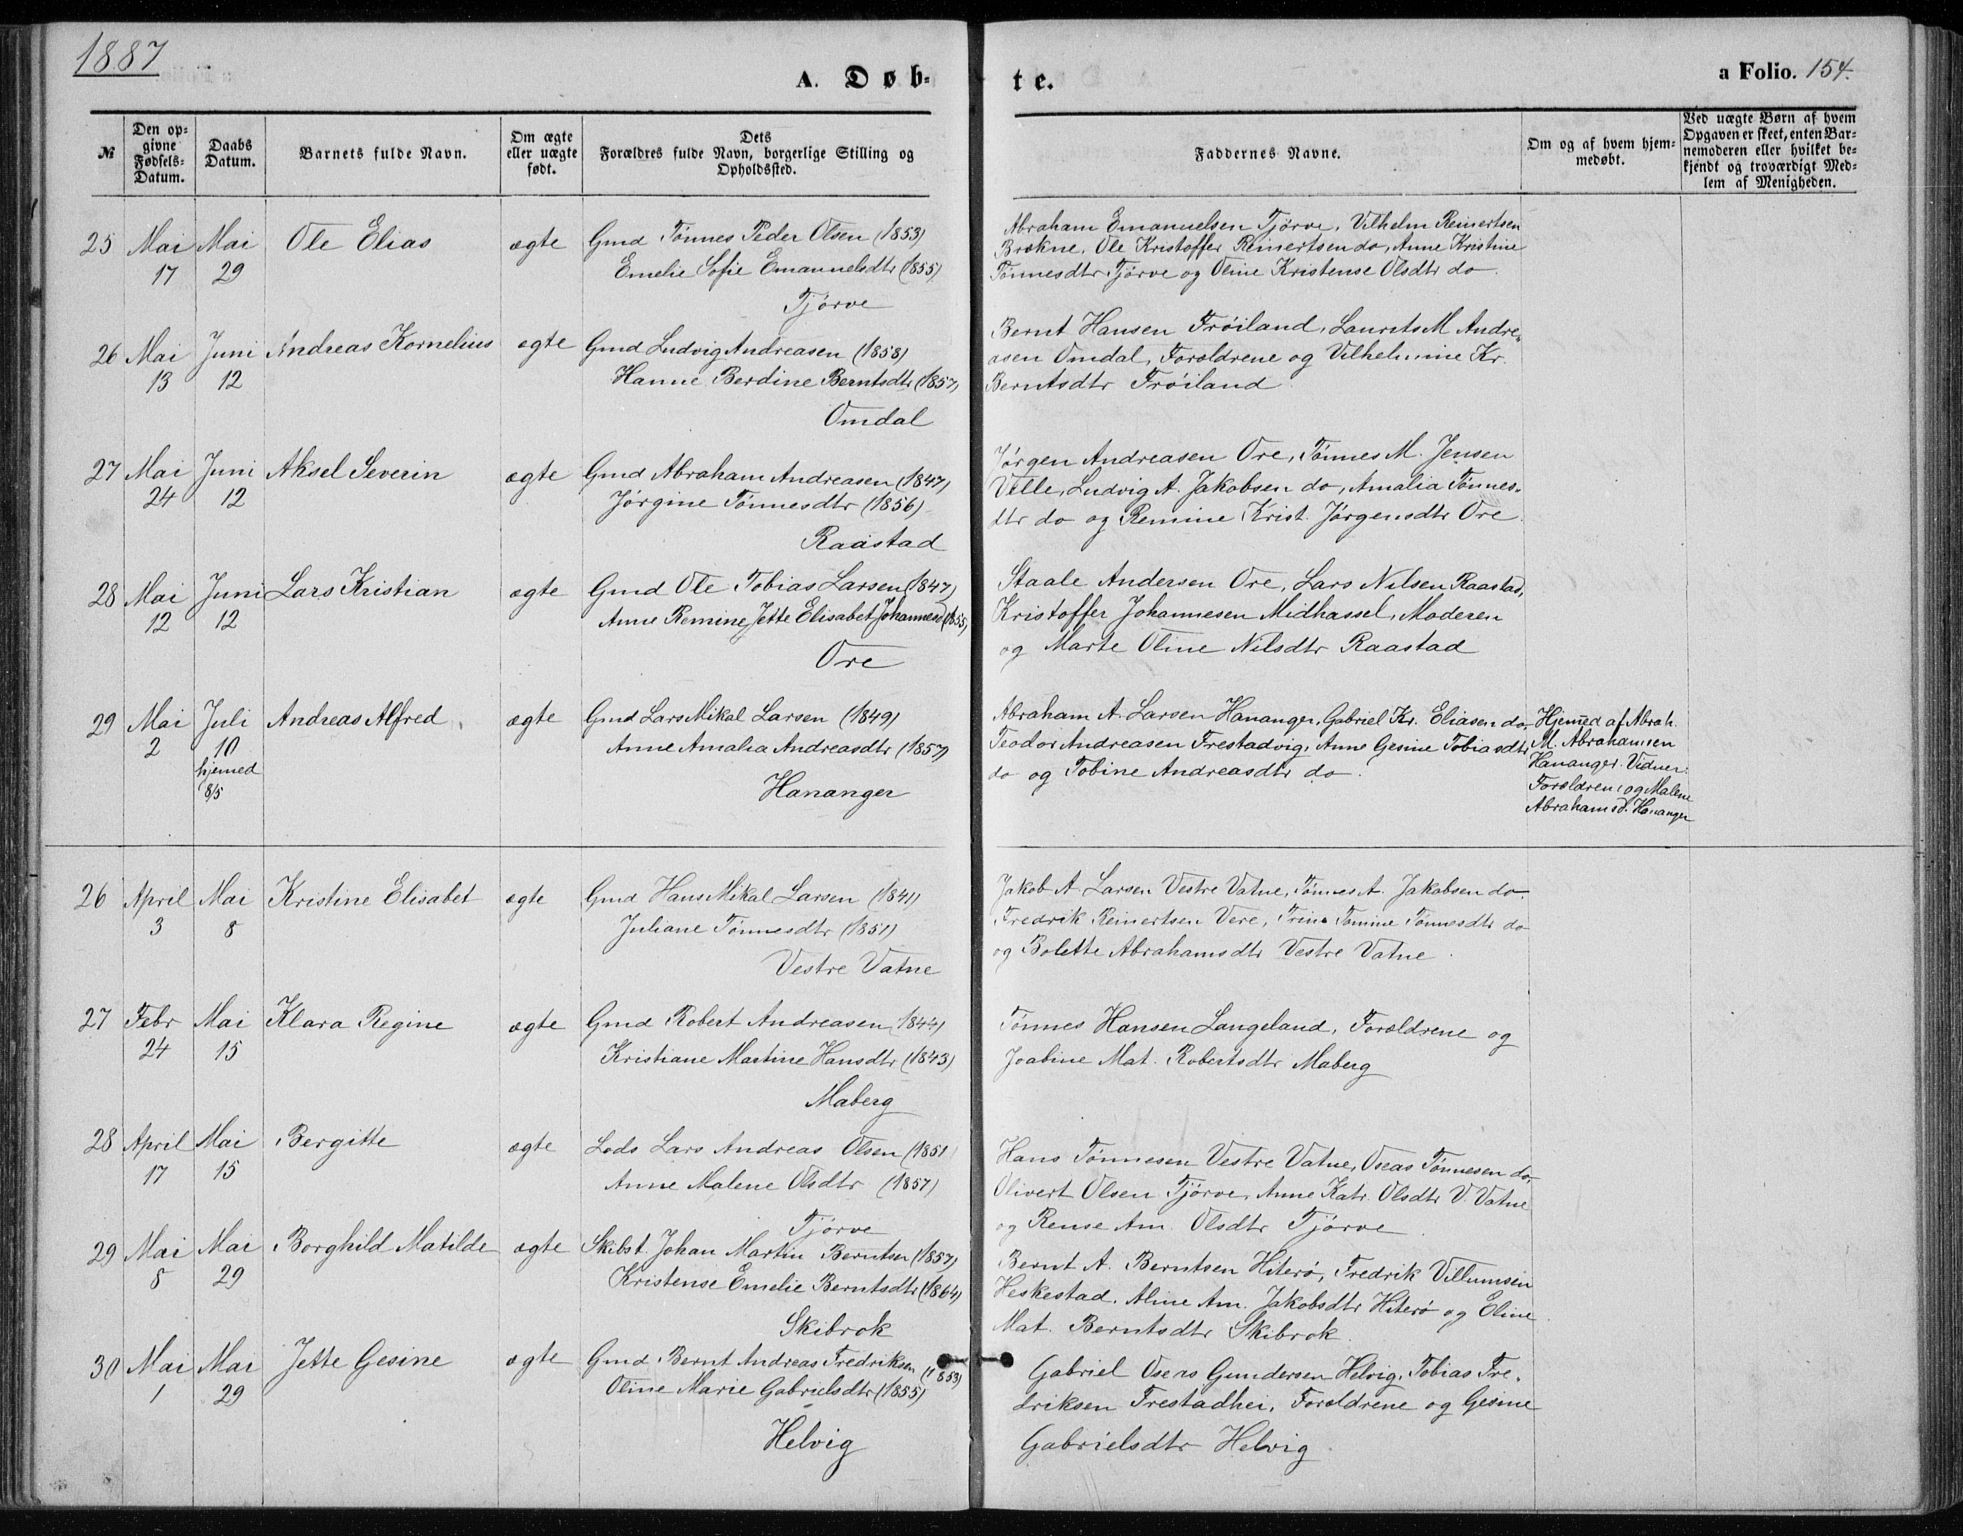 1887
A. Døb-
te.
a Folio. 154.
№
Den op-
givne
Fødsels-
Datum.
Daabs
Datum.
Barnets fulde Navn.
Om ægte
eller uægte
født.
Dets
Forældres fulde Navn, borgerlige Stilling og
Opholdssted.
Faddernes Navne.
Om og af hvem hjem-
medøbt.
Ved uægte Børn af hvem
Opgaven er skeet, enten Bar-
nemoderen eller hvilket be-
kjendt og troværdigt Med-
lem af Menigheden.
25 Mai Mai Ole Elias ægte Gmd Tønnes Peder Olsen (1853)
17 29 Emelie Sofie Emanuelsdtr (1855)
Tjørve
Abraham Emanuelsen Tjørve, Vilhelm Reinertsen
Brækne, Ole Kristoffer Reinertsen do, Anne Kristine
Tønnesdtr Tjørve og Oline Kristense Olsdtr do
26 Mai Juni Andreas Kornelius ægte Gmd Ludvig Andreasen (1858)
13 12 Hanne Berdine Berntsdtr (1857)
Omdal
Bernt Hansen Frøiland, Laurits M Andre-
asen Omdal, Forældrene og Vilhelmine Kr.
Berntsdtr Frøiland
27 Mai Juni Aksel Severin ægte Gmd Abraham Andreasen (1847)
24 12 Jørgine Tønnesdtr (1856)
Raastad
Jørgen Andreasen Ore, Tønnes M. Jensen
Velle, Ludvig A. Jakobsen do, Amalia Tønnes-
dtr do og Remine Krist. Jørgensdtr Ore
28 Mai Juni Lars Kristian ægte Gmd Ole Tobias Larsen (1847)
12 12 Anne Remine Jette Elisabet Johannesd (1855)
Ore
Staale Andersen Ore, Lars Nilsen Raastad,
Kristoffer Johannesen Midhassel, Moderen
og Marte Oline Nilsdtr Raastad
29 Mai Juli Andreas Alfred ægte Gmd Lars Mikal Larsen (1849)
2 10 Anne Amalia Andreasdtr (1857)
hjemed
8/5
Hananger
Abraham A. Larsen Hananger, Gabriel Kr. Eliasen do,
Teodor Andreasen Frestadvig, Anne Gesine Tobiasdtr
do og Tobine Andreasdtr do.
Hjemed af Abrah.
M. Abrahamsen
Hananger. Vidner:
Forældrene og Malene
Abrahamsd. Hananger
26 April Mai Kristine Elisabet ægte Gmd Hans Mikal Larsen (1841)
3 8 Juliane Tønnesdtr (1851)
Vestre Vatne
Jakob A. Larsen Vestre Vatne, Tønnes A. Jakobsen do
Fredrik Reinertsen Vere, Trine Tomine Tønnesdtr do
og Bolette Abrahamsdtr Vestre Vatne
27 Febr Mai Klara Regine ægte Gmd Robert Andreasen (1844)
24 15 Kristiane Martine Hansdtr (1843)
Maberg
Tønnes Hansen Langeland, Forældrene og
Joabine Mat. Robertsdtr Maberg
28 April Mai Bergitte ægte Lods Lars Andreas Olsen (1851
17 15 Anne Malene Olsdtr (1857)
Tjørve
Hans Tønnesen Vestre Vatne, Oseas Tønnesen do,
Olivert Olsen Tjørve, Anne Katr. Olsdtr V. Vatne
og Rense Am. Olsdtr Tjørve
29 Mai Mai Borghild Matilde ægte Skibst. Johan Martin Berntsen (1857)
8 29 Kristense Emelie Berntsdtr (1864)
Skibrok
Bernt A. Berntsen Hiterø, Fredrik Villumsen
Heskestad, Aline Am. Jakobsdtr Hiterø og Eline
Mat. Berntsdtr Skibrok.
30 Mai Mai Jette Gesine ægte Gmd Bernt Andreas Fredriksen (1853)
1 29 Oline Marie Gabrielsdtr (1855)
Helvig
Gabriel Oseas Gundersen Helvig, Tobias Fre-
driksen Frestadhei, Forældrene og Gesine
Gabrielsdtr Helvig